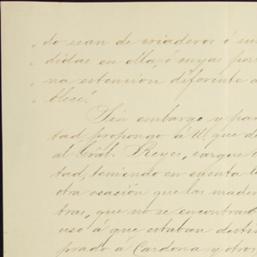 do sean de criaderos ó
didas en ella, ó cuyas por
na estencion diferente á
blece.
Sin embargo y pa
tad propongo á U. que de
al Gral. Reyes, cargue
tad, teniendo en cuenta l
otra ocasión que las made
tras, que no se encontrar
uso á que estaban desti
prado á Cardona y otros